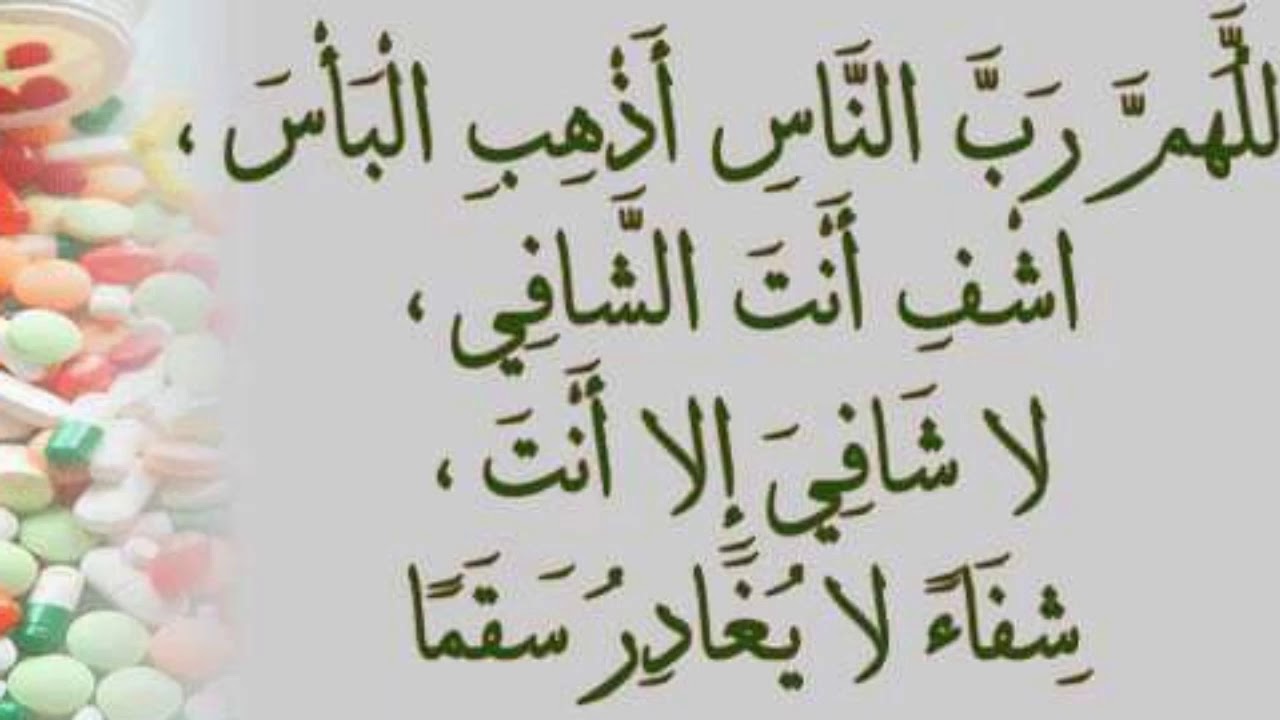 اللَّهمَّ رَبَّ النَّاسِ أَذْهِبِ الْبَأْسَ ،
اشْفِ أَنْتَ الشَّافِي ،
لا شَافِيَ إِلا أَنْتَ ،
شِفَاءً لا يُغَادِرُ سَقَمًا